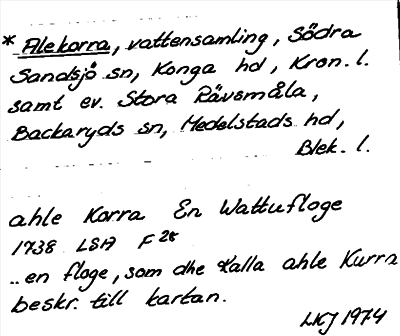 * Alekorra, vattensamling, Södra
Sandsjö sn, Konga hd, Kron. l.
samt ev. Stora Rävsmåla,
Backaryds sn, Medelstads hd,
Blek. l.
ahle Korra En Wattufloge
1738 LSA F 28
.. en floge, som dhe kalla ahle Kurra
beskr. till kartan.
LKJ 1974